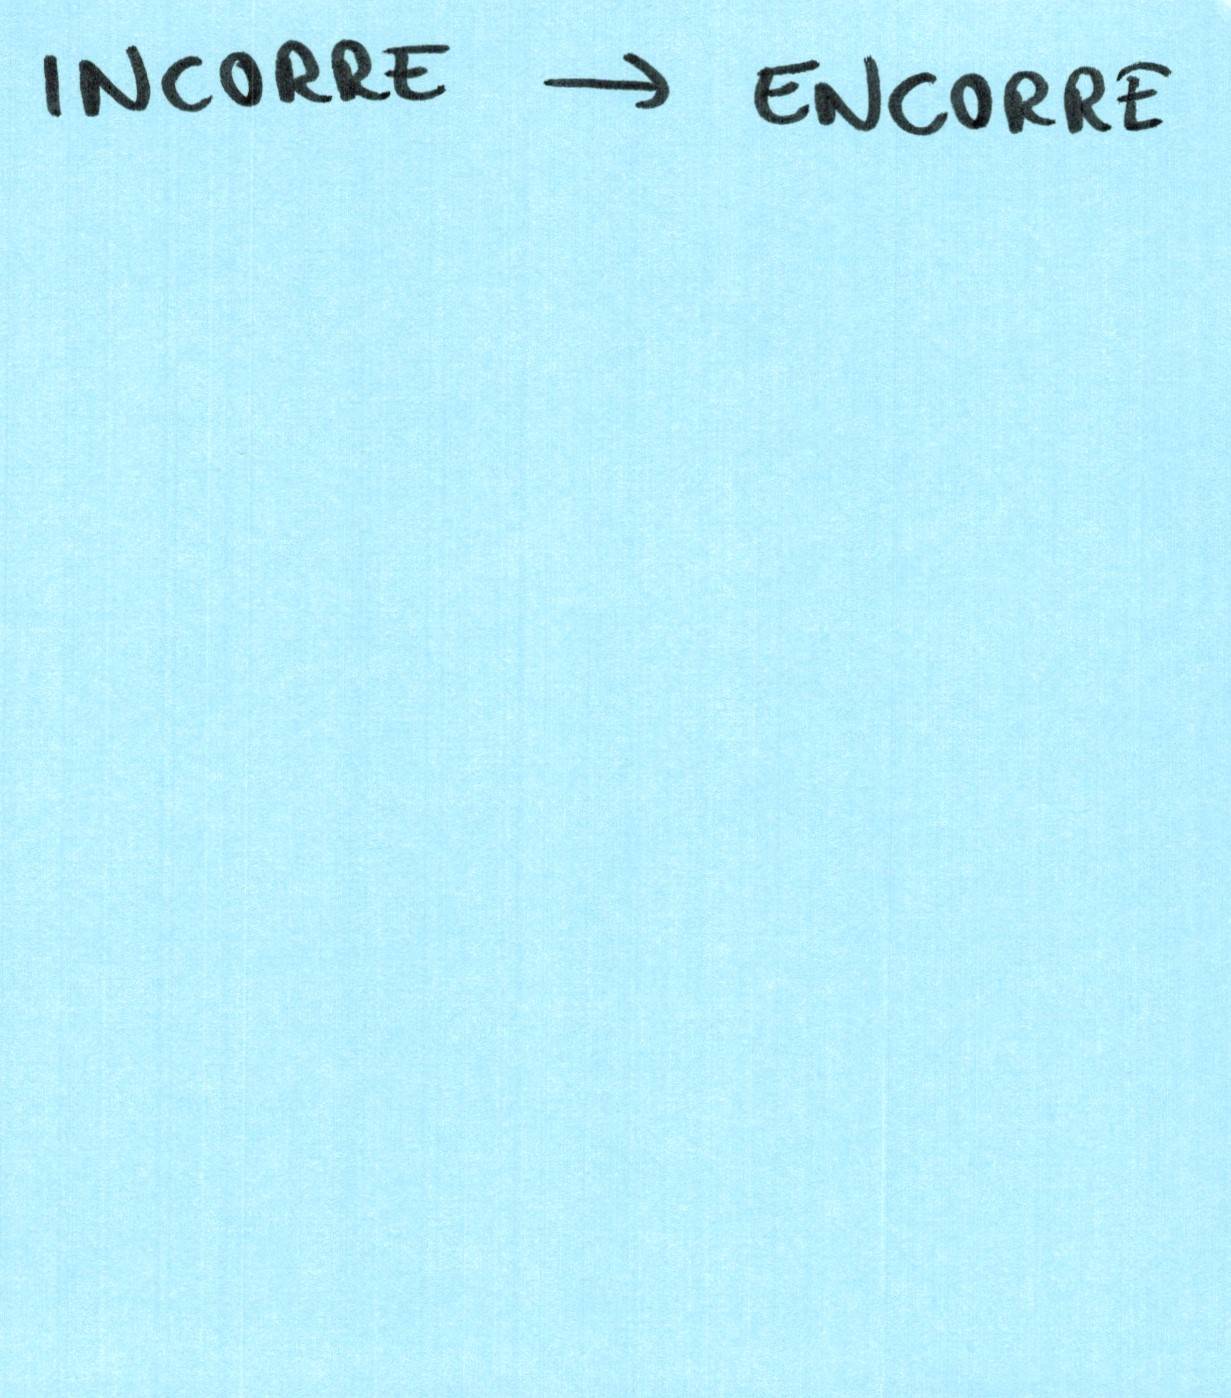 INCORRE → ENCORRE